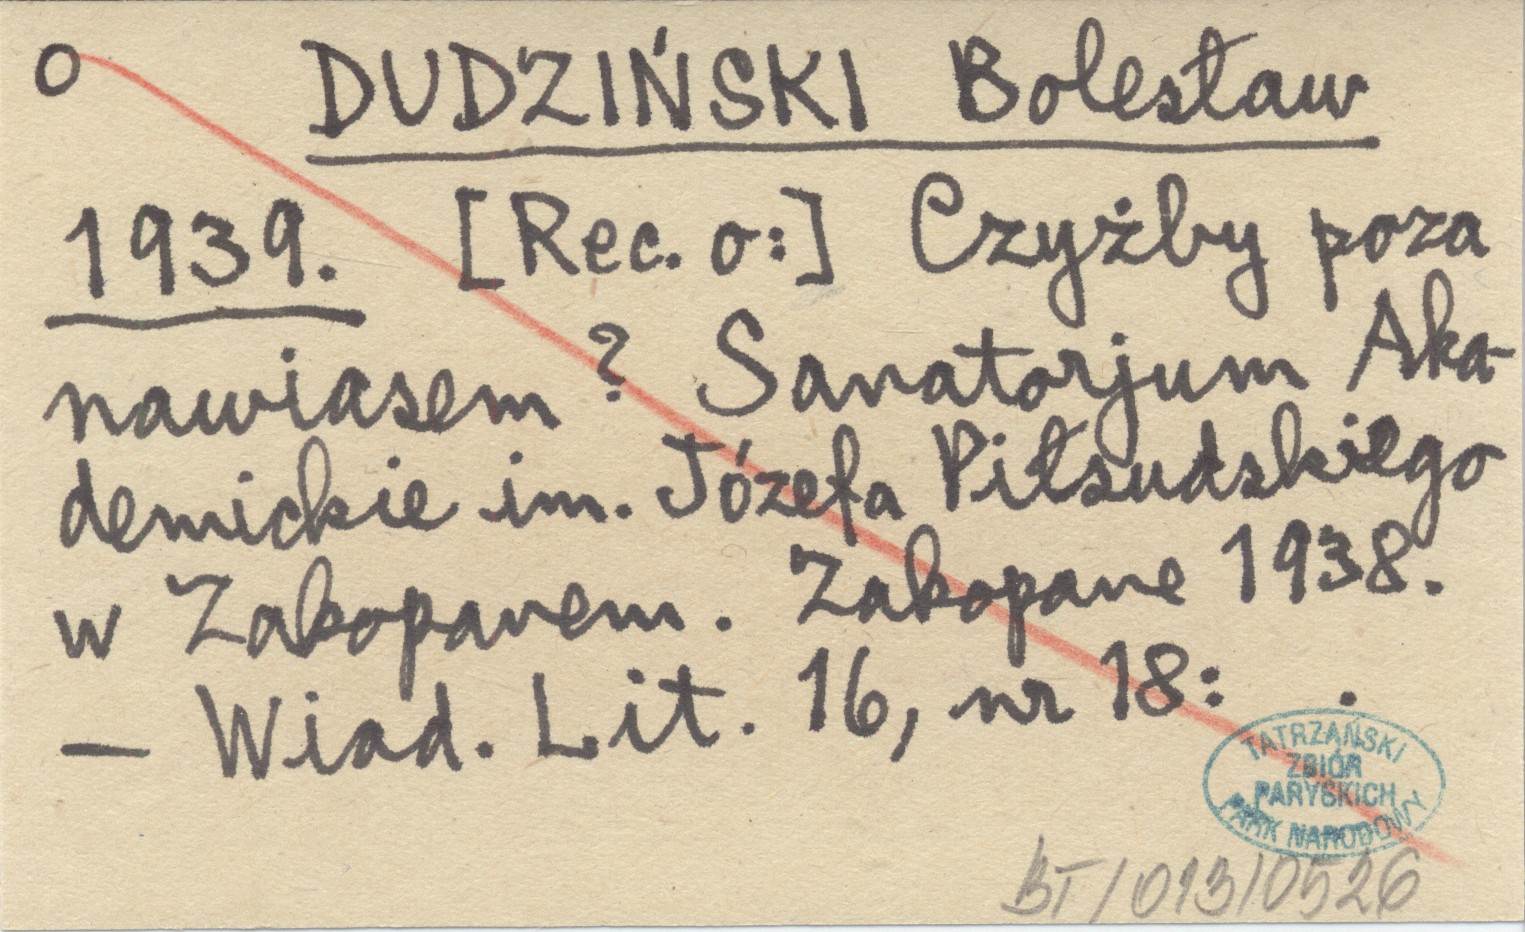 o DUDZIŃSKI Bolesław
1939. [Rec. o:] Czyżby poza
nawiasem? Sanatorjum Aka-
demickie im. Józefa Piłsudskiego
w Zakopanem. Zakopane 1938.
— Wiad. Lit. 16, nr 18: .
TATRZAŃSKI
ZBIÓR
PARYSKICH
PARK NARODOWY
BT/013/0526